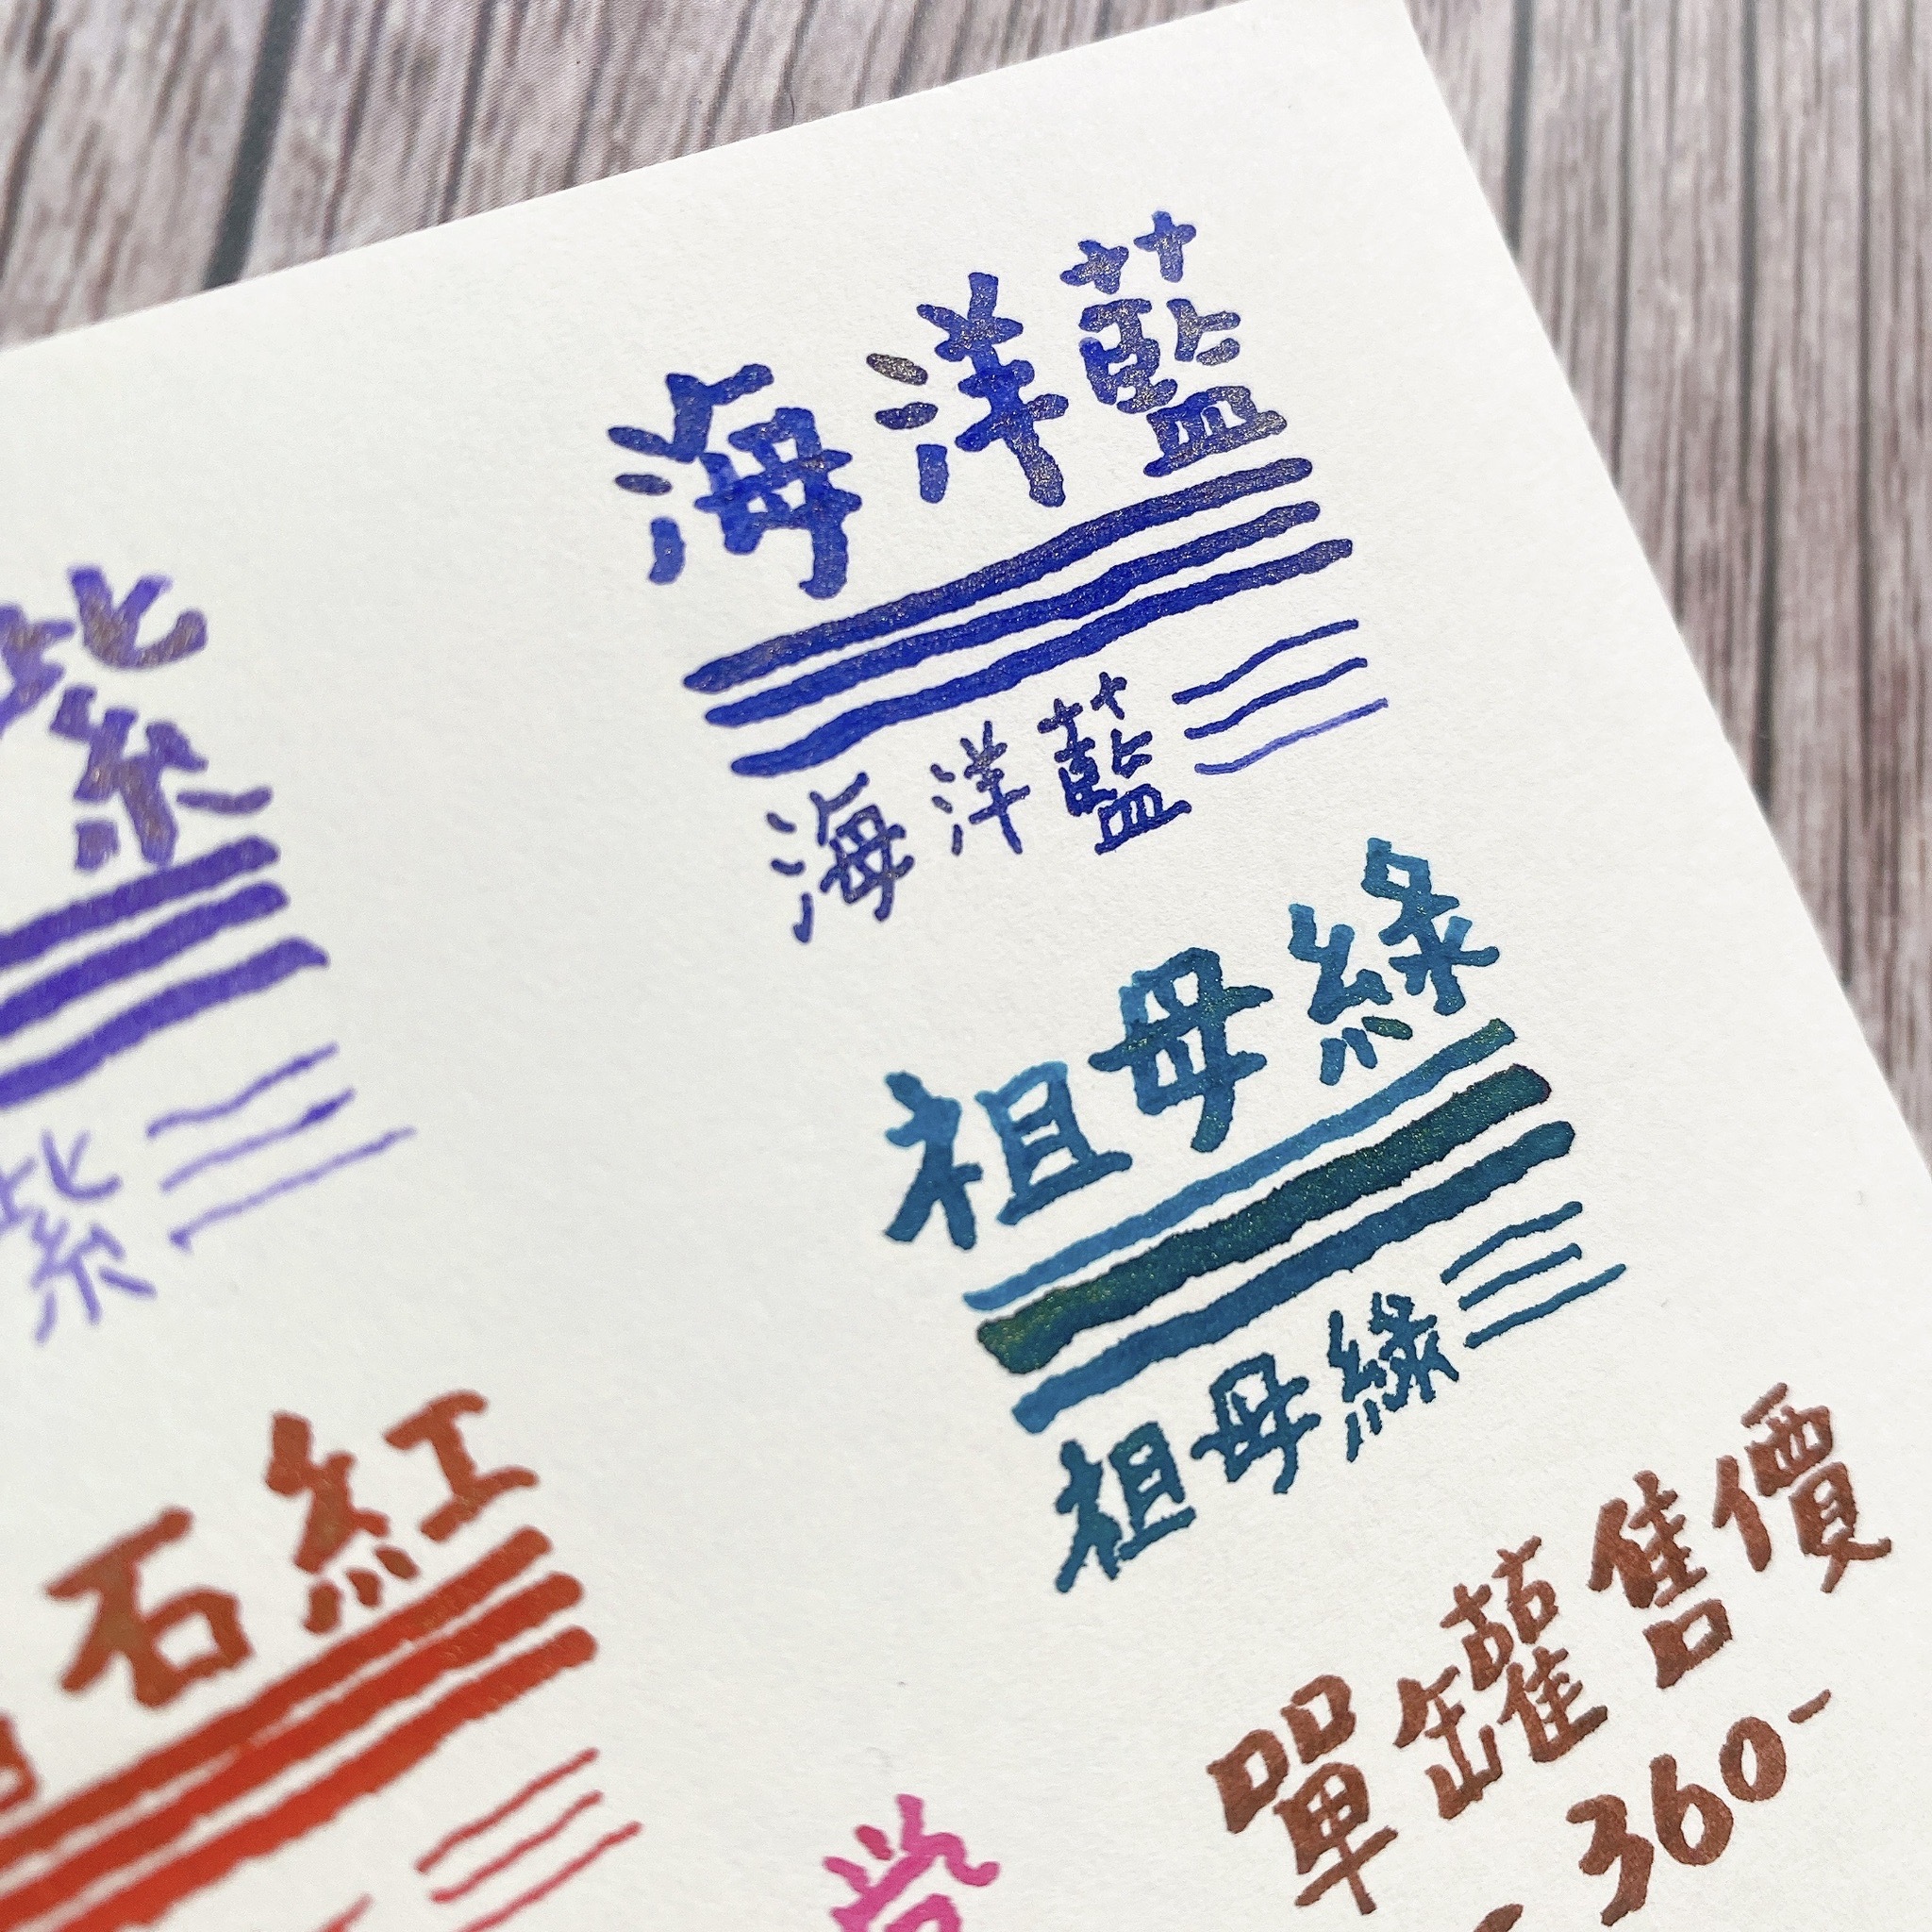 海洋藍
海洋藍
紫
紫
祖母綠
祖母綠
石紅
單罐售價
360-